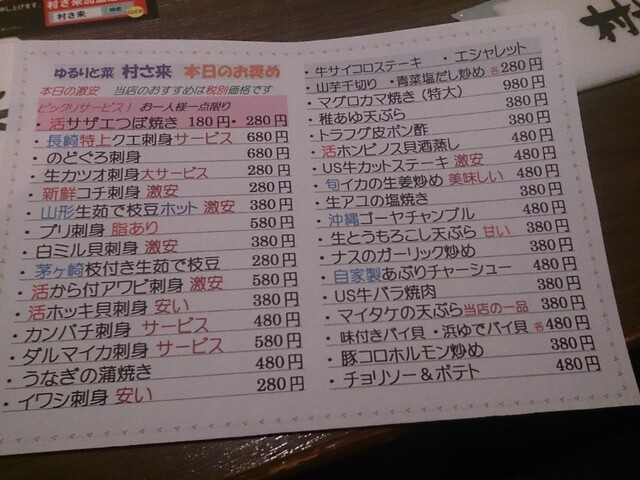 村さ来
ゆるりと菜 村さ来 本日のお奨め
本日の激安 当店のおすすめは税別価格です
ビックリサービス! お一人様一点限り
・活サザエつぼ焼き 180円・280円
・長崎特上クエ刺身サービス 680円
・のどぐろ刺身 680円
・生カツオ刺身大サービス 280円
・新鮮コチ刺身 激安 280円
・山形生茹で枝豆ホット 激安 380円
・ブリ刺身 脂あり 580円
・白ミル貝刺身 激安 380円
・茅ヶ崎枝付き生茹で枝豆 280円
・活から付アワビ刺身 激安 580円
・活ホッキ貝刺身 安い 380円
・カンパチ刺身 サービス 480円
・ダルマイカ刺身 サービス 580円
・うなぎの蒲焼き 480円
・イワシ刺身 安い 280円
・牛サイコロステーキ ・エシャレット
・山芋千切り ・青菜塩だし炒め 各280円
・マグロカマ焼き(特大) 980円
・稚あゆ天ぷら 380円
・トラフグ皮ポン酢 380円
・活ホンビノス貝酒蒸し 480円
・US牛カットステーキ 激安 480円
・旬イカの生姜炒め 美味しい 480円
・生アユの塩焼き 480円
・沖縄ゴーヤチャンプル 480円
・生とうもろこし天ぷら 甘い 380円
・ナスのガーリック炒め 380円
・自家製あぶりチャーシュー 480円
・US牛バラ焼肉 380円
・マイタケの天ぷら当店の一品 380円
・味付きバイ貝・浜ゆでバイ貝 各480円
・豚コロホルモン炒め 380円
・チョリソー&ポテト 480円
村